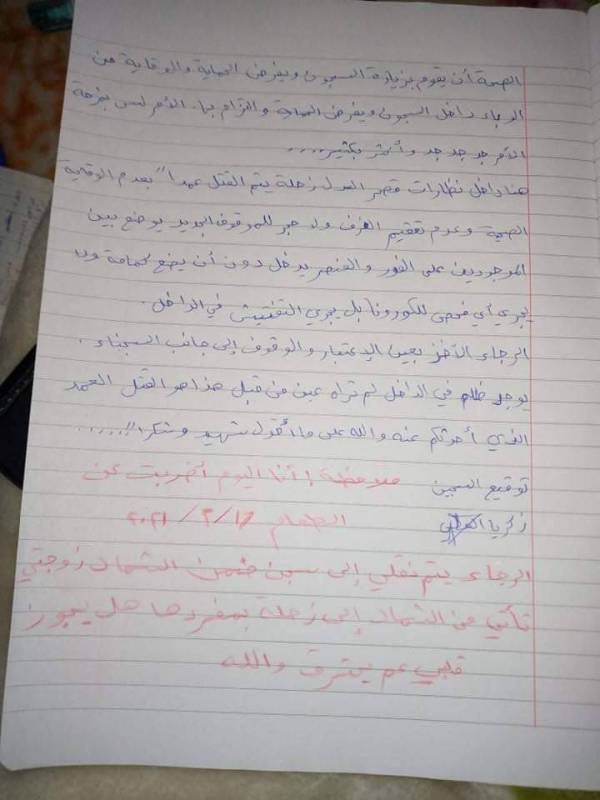 الصحة أن يقوم بزيارة السجون ويفرض الحماية والوقاية من
الوباء داخل السجون ويفرض الحماية والتزام بها. الأمر ليس بمزحة
الأمر جد جد جد وأكثر بكثير....
هنا داخل نظارات قصر العدل زحلة يتم القتل عمداً "بعدم الوقاية
الصحية وعدم تعقيم الغرف ولا حجر للموقوف الجديد يوضع بين
الموجودين على الفور والعنصر يدخل دون أن يضع كمامة ولا
يجري أي فحص للكورونا بل يجري التفتيش في الداخل.
الرجاء الأخذ بعين الإعتبار والوقوف إلى جانب السجناء.
يوجد ظلم في الداخل لم تراه عين من قبل هذا هو القتل العمد
الذي أحدثكم عنه والله على ما أقول شهيد وشكراً"....
توقيع السجين ملاحظة: أنا اليوم أضربت عن
زكريا الطعام ٢٠٢١/٢/١٦
الرجاء يتم نقلي إلى سجن ضمن الشمال زوجتي
تأتي من الشمال إلى زحلة بمفردها هل يجوز
قلبي عم يحترق والله